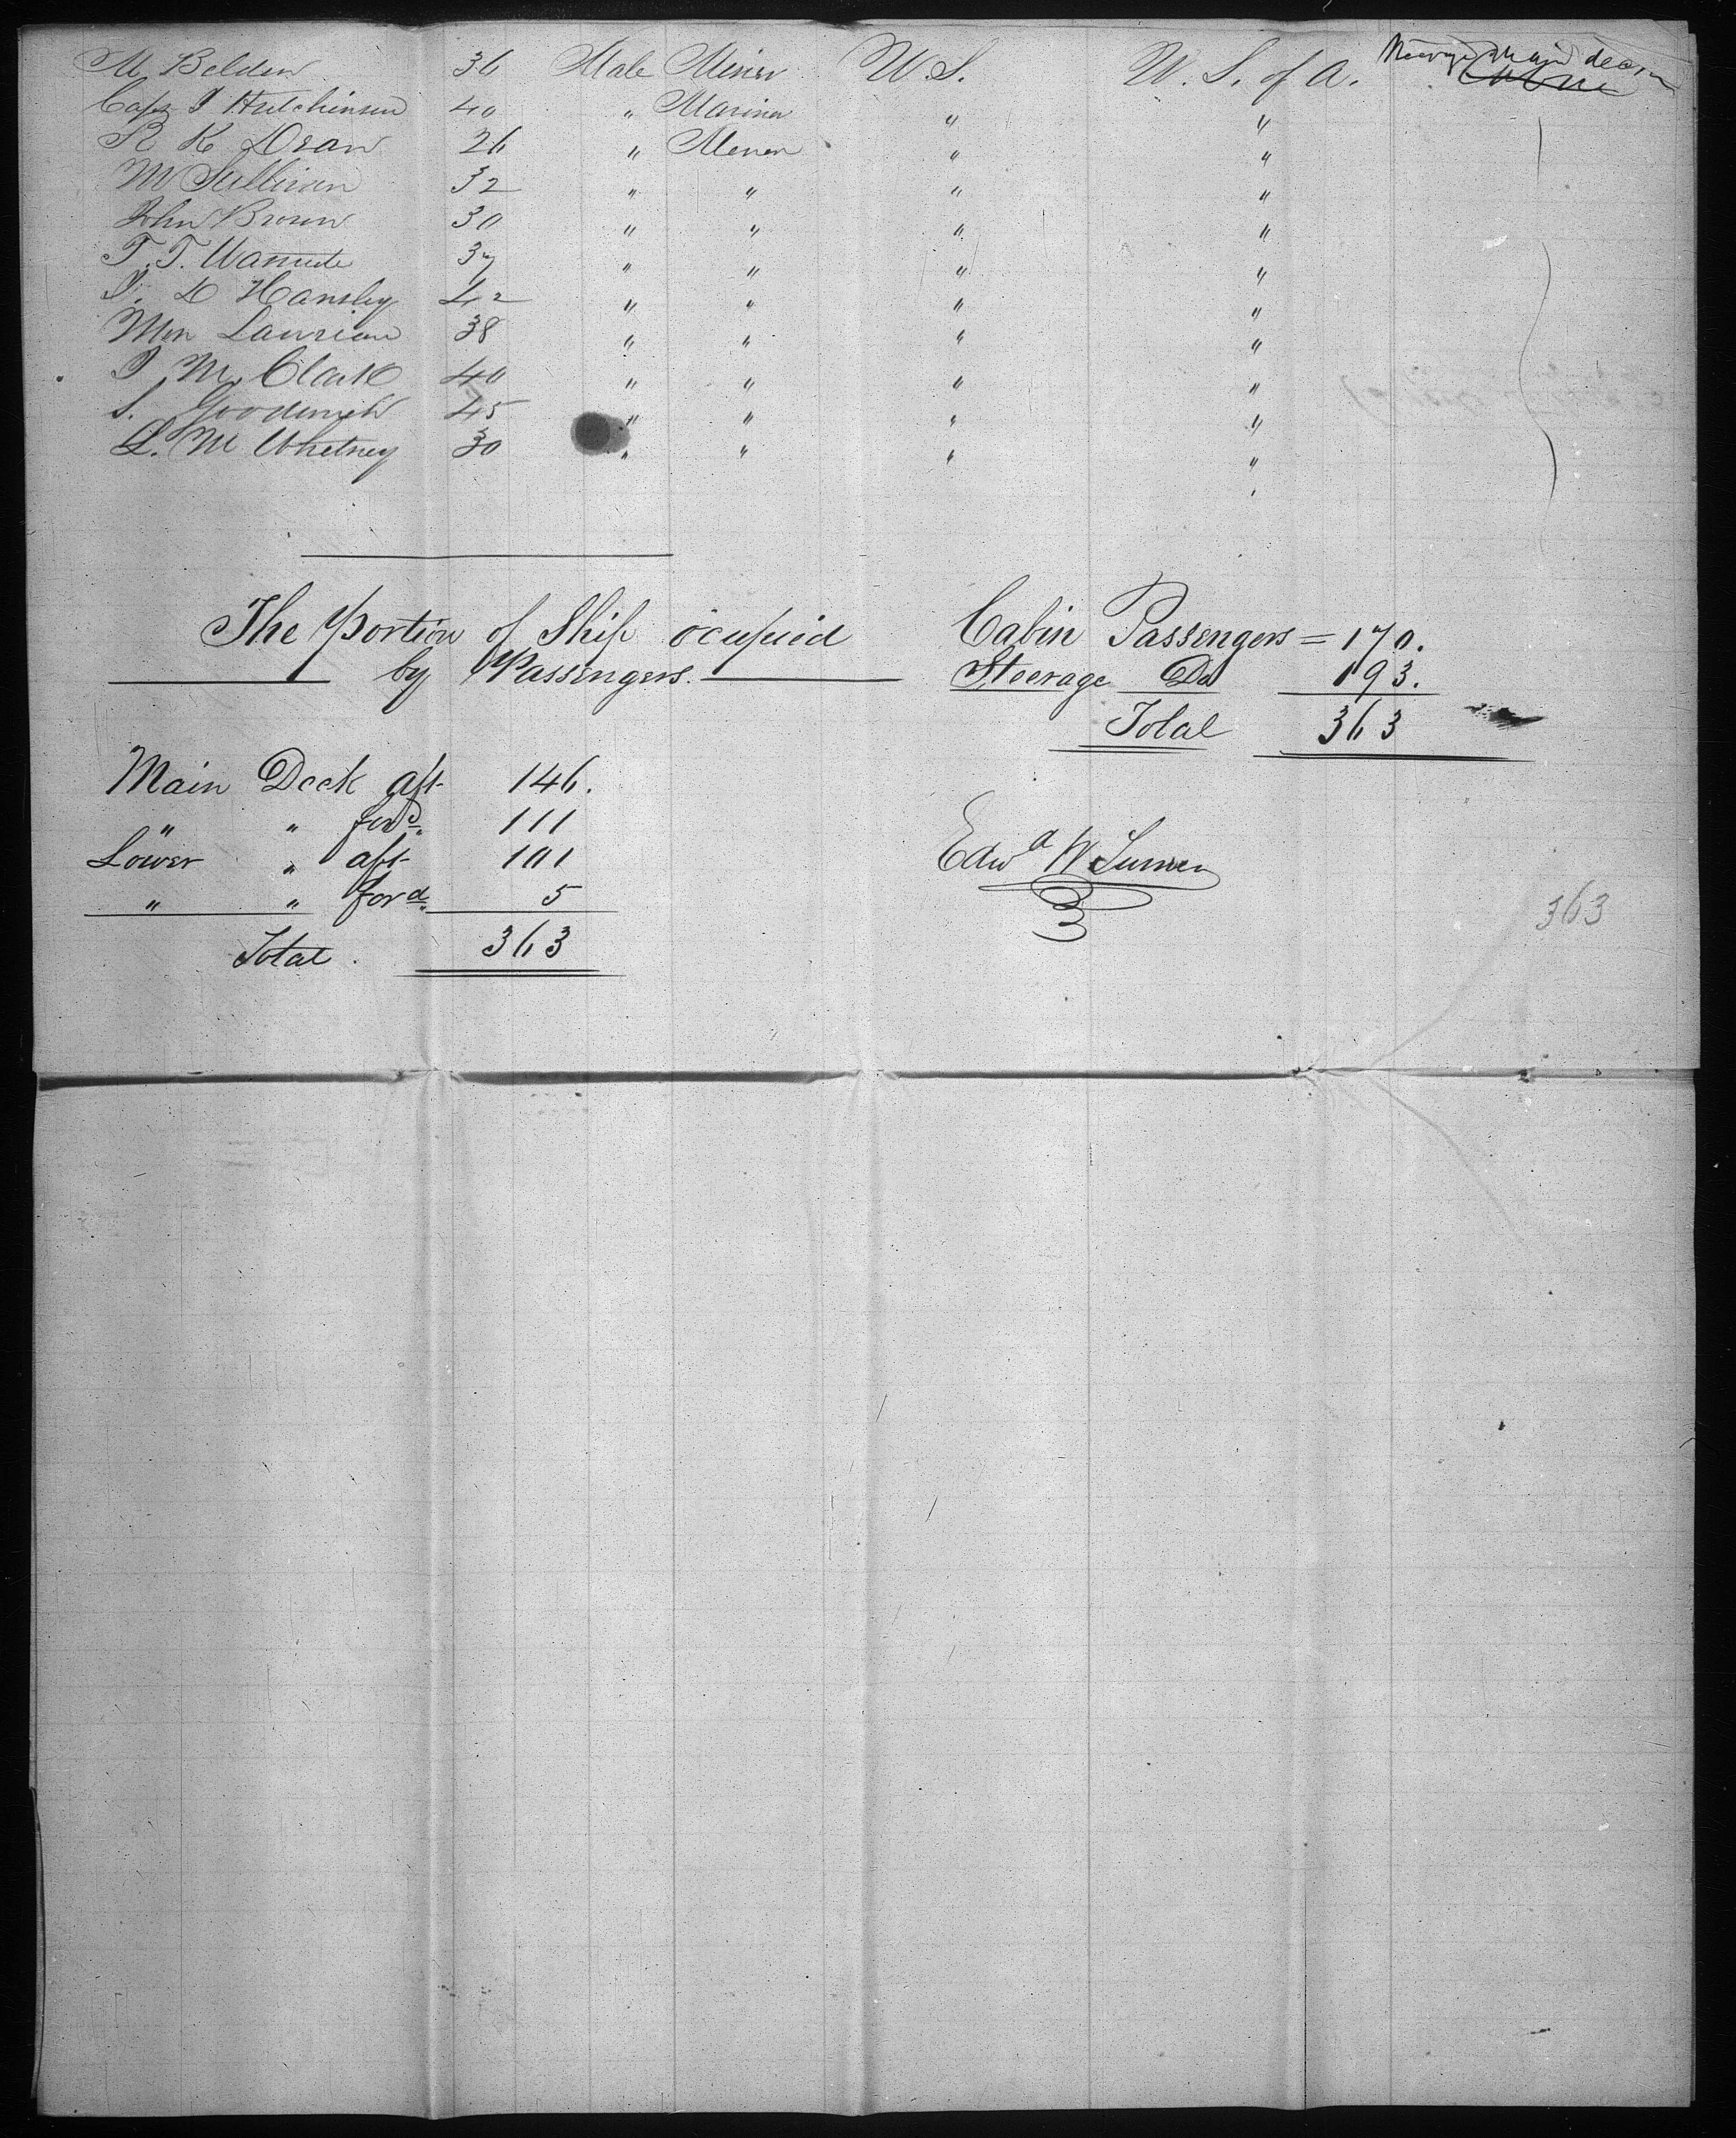 M Belden 36 Male Miner U S. U. S. of A. Main deck
Capt J Hutchinson 40 " Mariner " "
R K Doran 26 " Miner " "
M Sullivan 32 " " " "
John Brown 30 " " " "
T. T. 37 " " " "
J. D Hansley 42 " " " "
Wm 38 " " " "
J M. Clark 40 " " " "
S. Goodenoh 45 " " " "
L. M Whetney 30 " " " "
The Portion of Ship ocupied
by Passengers.
Cabin Passengers = 170.
Steerage Do 193.
Total 363
Main Deck aft 146.
" " ford. 111
Lower " aft 101
" " ford. 5
Total. 363
Edwd W
363